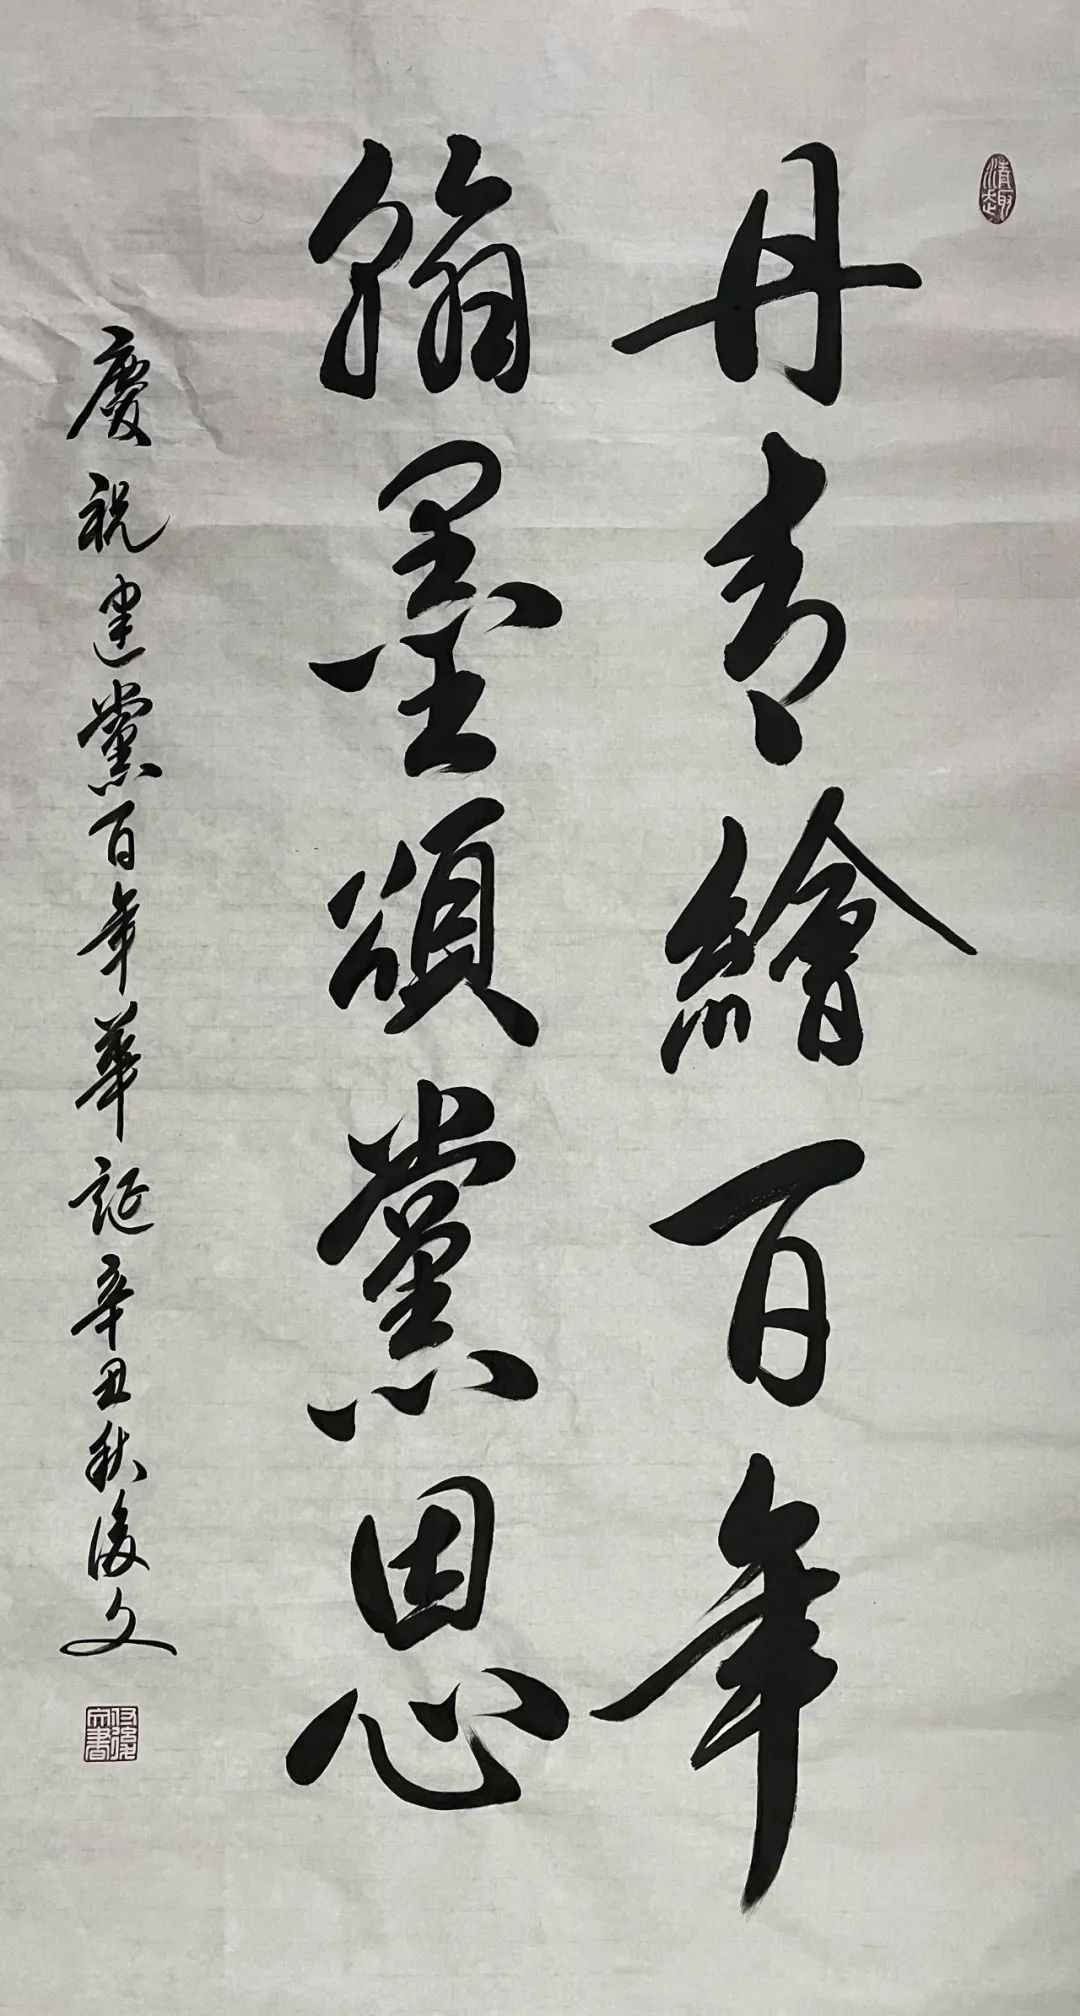 清趣
丹青繪百年
翰墨頌黨恩
慶祝建黨百年華誕辛丑秋後文